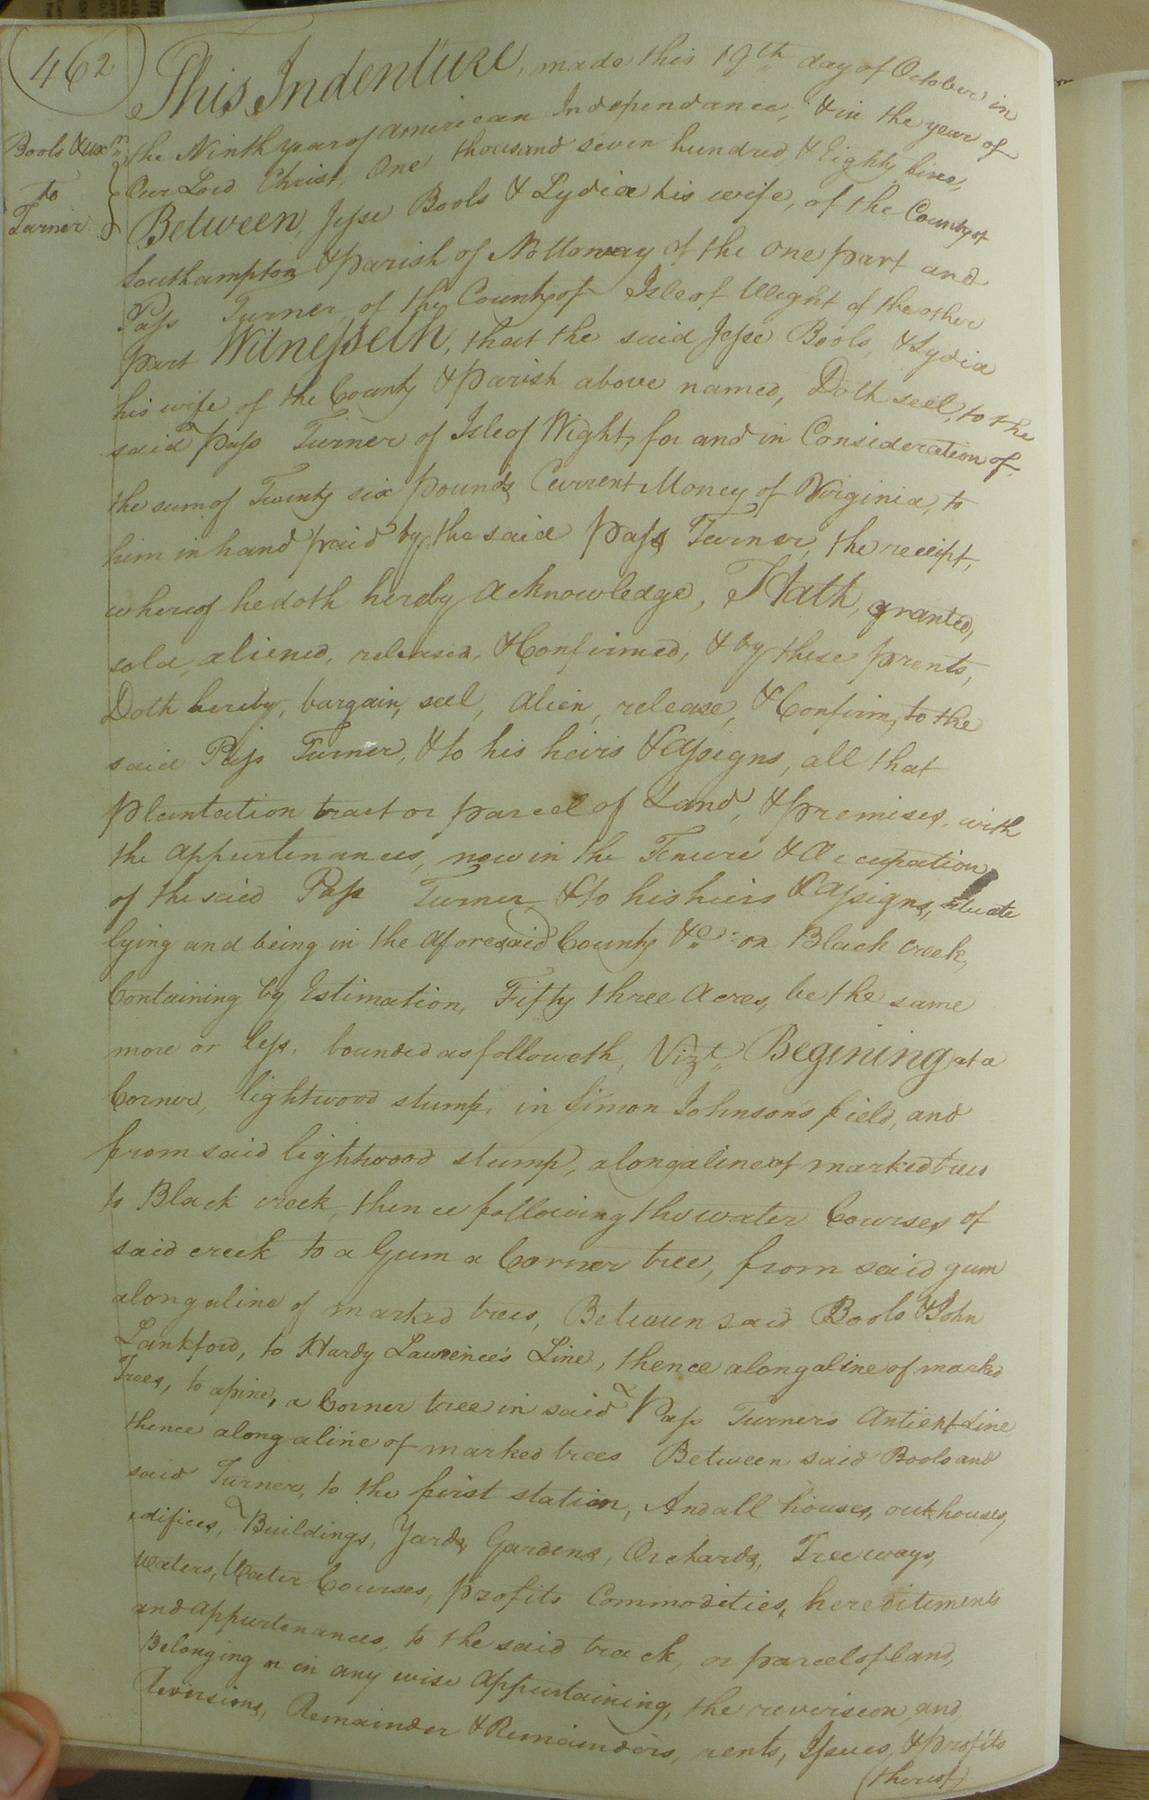 462
This Indenture, made this 19th day of October in
the Ninth year of American Independance, & in the year of
Our Lord Christ, One thousand seven hundred & Eighty five,
Bools & ux
to
Turner
Between, Jesse Bools & Lydia his wife, of the County of
Southampton & parish of Nottoway of the one part and
Pass Turner of the County of Isle of Wight of the other
part Witnesseth, that the said Jesse Bools, & Lydia
his wife of the County & parish above named, Doth seel, to the
said Pass Turner of Isle of Wight, for and in Consideration of
the sum of Twenty six pounds Current Money of Virginia, to
him in hand paid by the said Pass Turner, the receipt,
whereof he doth hereby acknowledge, Hath, granted,
sold, aliened, released, & Confirmed, & by these prents,
Doth hereby, bargain, seel, alien, release, & Confirm, to the
said Pass Turner, & to his heirs & assigns, all that
plantation tract or parcel of Land, & premises, with
the appurtenances, now in the Tenure & Occupation
of the said Pass Turner & to his heirs & assigns, situate
lying and being in the aforesaid County &c. on Black creek,
Containing by Estimation, Fifty three Acres, be the same
more or less, bounded as followeth, Vizt. Begining at a
Corner, lightwood stump, in Simon Johnsons field, and
from said lightwood stump, along a line of marked trees
to Black creek, thence following the water Courses of
said creek to a Gum a Corner tree, from said gum
along a line of marked trees, Between said Bools & John
Lankford, to Hardy Lawrence's Line, thence along a line of marked
Trees, to a pine, a Corner tree in said Pass Turner's Antient Line
thence along a line of marked trees Between said Bools and
said Turner, to the first station, And all houses, outhouses,
edifices, Buildings, Yards, Gardens, Orchards, Tree ways,
Waters, Water Courses, profits Commodities, hereditements
and appurtenances, to the said track, or parcel of land,
Belonging or in any wise appurtaining, the reverseon, and
Reversions, Remainder & Remainders, rents, Issues, & profits
(thereof)